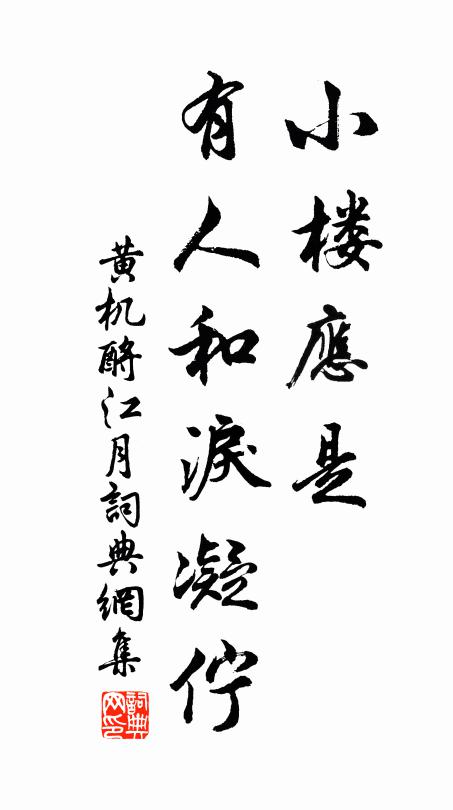 小楼應是
有人和淚凝佇
黄机酹江月詞典網集
詞典网印